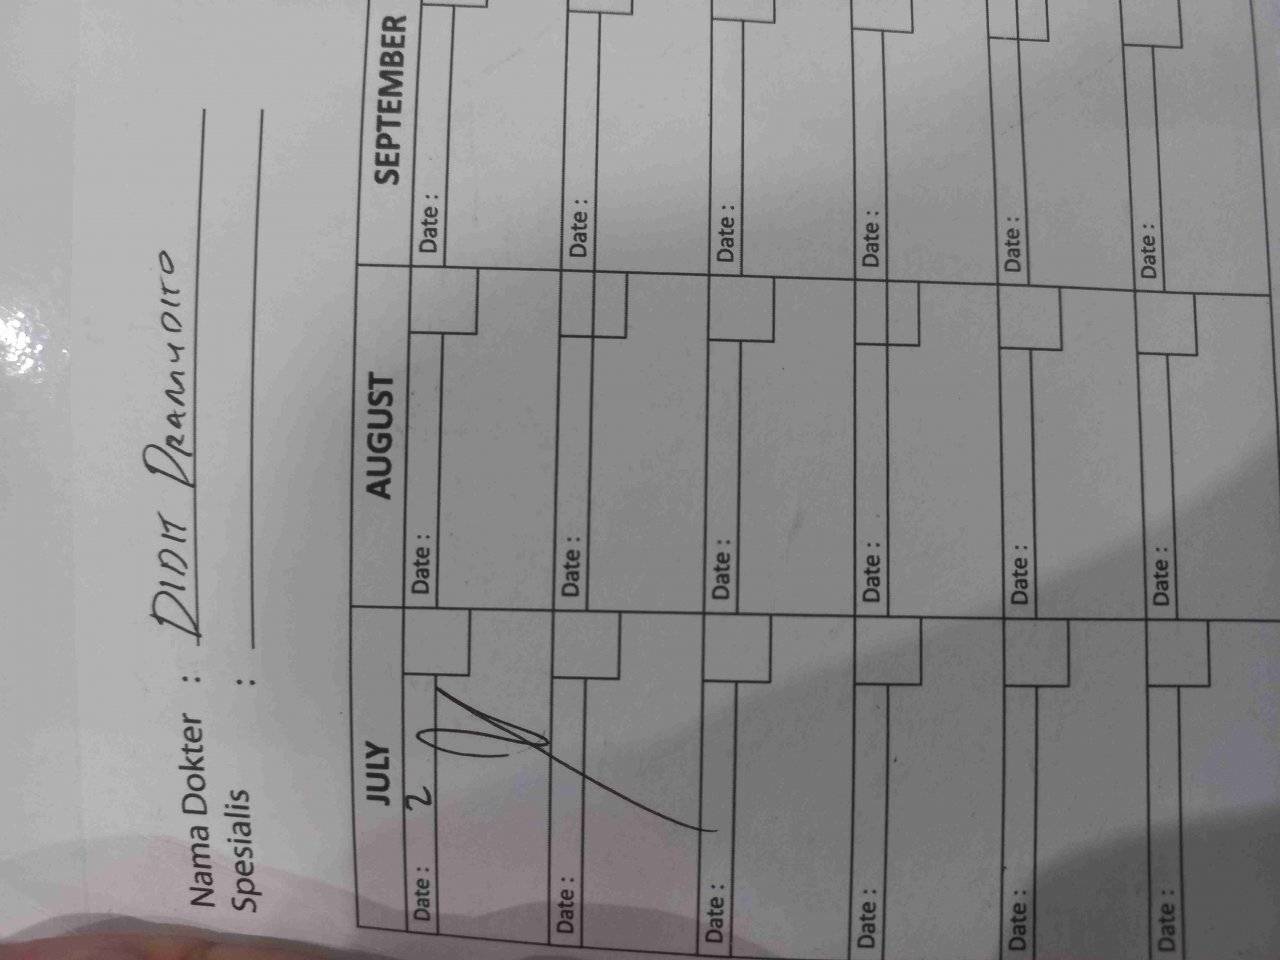 Nama Dokter : DIDIT PRAMUDITO
Spesialis :
JULY AUGUST SEPTEMBER
Date : 2 Date : Date :
Date : Date : Date :
Date : Date : Date :
Date : Date : Date :
Date : Date : Date :
Date : Date : Date :